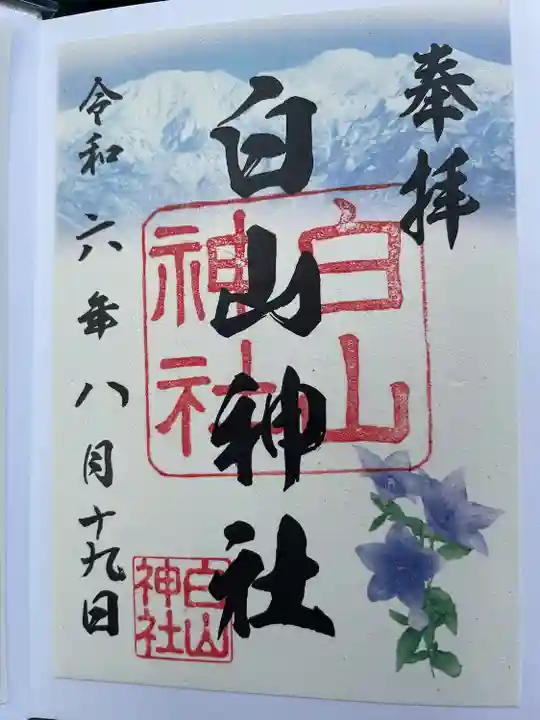 奉拝
白山神社
白山
神社
令和六年八月十九日
白山
神社